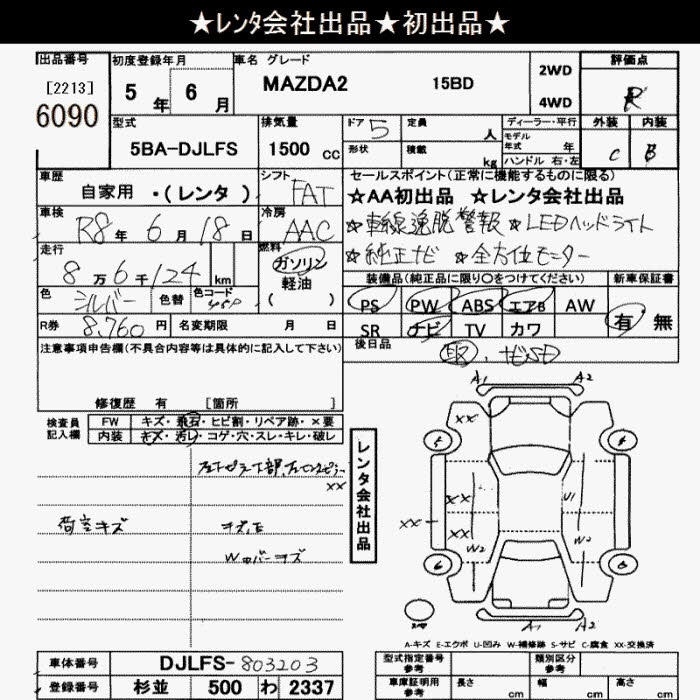 ★レンタ会社出品★初出品★
出品番号 初度登録年月 車名 グレード 評価点
[2213] 6090
5年 6月 MAZDA2 15BD 2WD 4WD R
型式 排気量 ドア 5 定員 人 ディーラー・平行 外装 内装
5BA-DJLFS 1500 cc 形状 積載 kg モデル年式 年 ハンドル 右・左 C B
車歴 シフト セールスポイント(正常に機能するものに限る)
自家用 ・(レンタ ) FAT ☆AA初出品 ☆レンタ会社出品
車検 冷房 ☆車線逸脱警報 ☆LEDヘッドライト
R8年 6月 18日 AAC ☆純正ナビ ☆全方位モニター
走行 燃料
8万6千124 km ガソリン 軽油 ( ) 装備品(純正品に限り○をつけてください) 新車保証書
色 シルバー 色替 色コード PS PW ABS エアB AW 有 無
R券 8,760円 名変期限 月 日 SR ナビ TV カワ
注意事項申告欄(不具合内容等は具体的に記入して下さい) 後日品 取、ナビSD
修復歴 有 [箇所 ]
検査員記入欄 FW キズ・飛石・ヒビ割・リペア跡・×要
内装 キズ・汚レ・コゲ・穴・スレ・キレ・破レ
××
荷室キズ
レンタ会社出品
A1 A2
××
××
U1
××
××
W2 W2
A1 A2
A-キズ E-エクボ U-凹み W-補修跡 S-サビ C-腐食 XX-交換済
車体番号 DJLFS-803203 型式指定番号 参考 類別区分 参考
登録番号 杉並 500 わ 2337 車庫証明用 参考 長さ cm 幅 cm 高さ cm